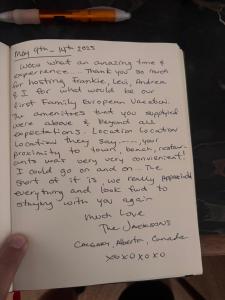 May 9th - 14th 2025
Wow what an amazing time &
experience.... Thank you so much
for hosting Frankie, Levi, Andrea
& I for what would be our
first Family European Vacation.
The amenities that you supplied
were above & Beyond all
expectations. Location Location
Location they say......, your
proximity to town, beach, restaur-
ants was very very convienient!
I could go on and on... The
short of it is, we really Appreciated
everything and look fwd to
staying with you again
Much Love
The Jacksons
Calgary, Alberta, Canada
xoxoxoxo